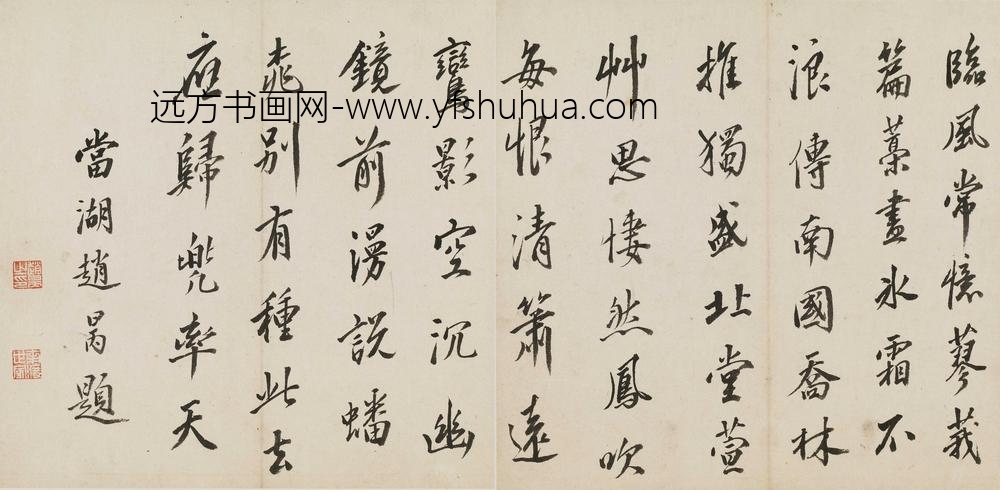 臨風常憶蓼莪
篇藁畫冰霜不
浪傳南國喬林
推獨盛北堂萱
艸思悽然鳳吹
每恨清簫遠
鸞影空沉幽
鏡前漫説蟠
桃別有種此去
應歸兜率天
當湖趙昺題
远方书画网-www.yishuhua.com